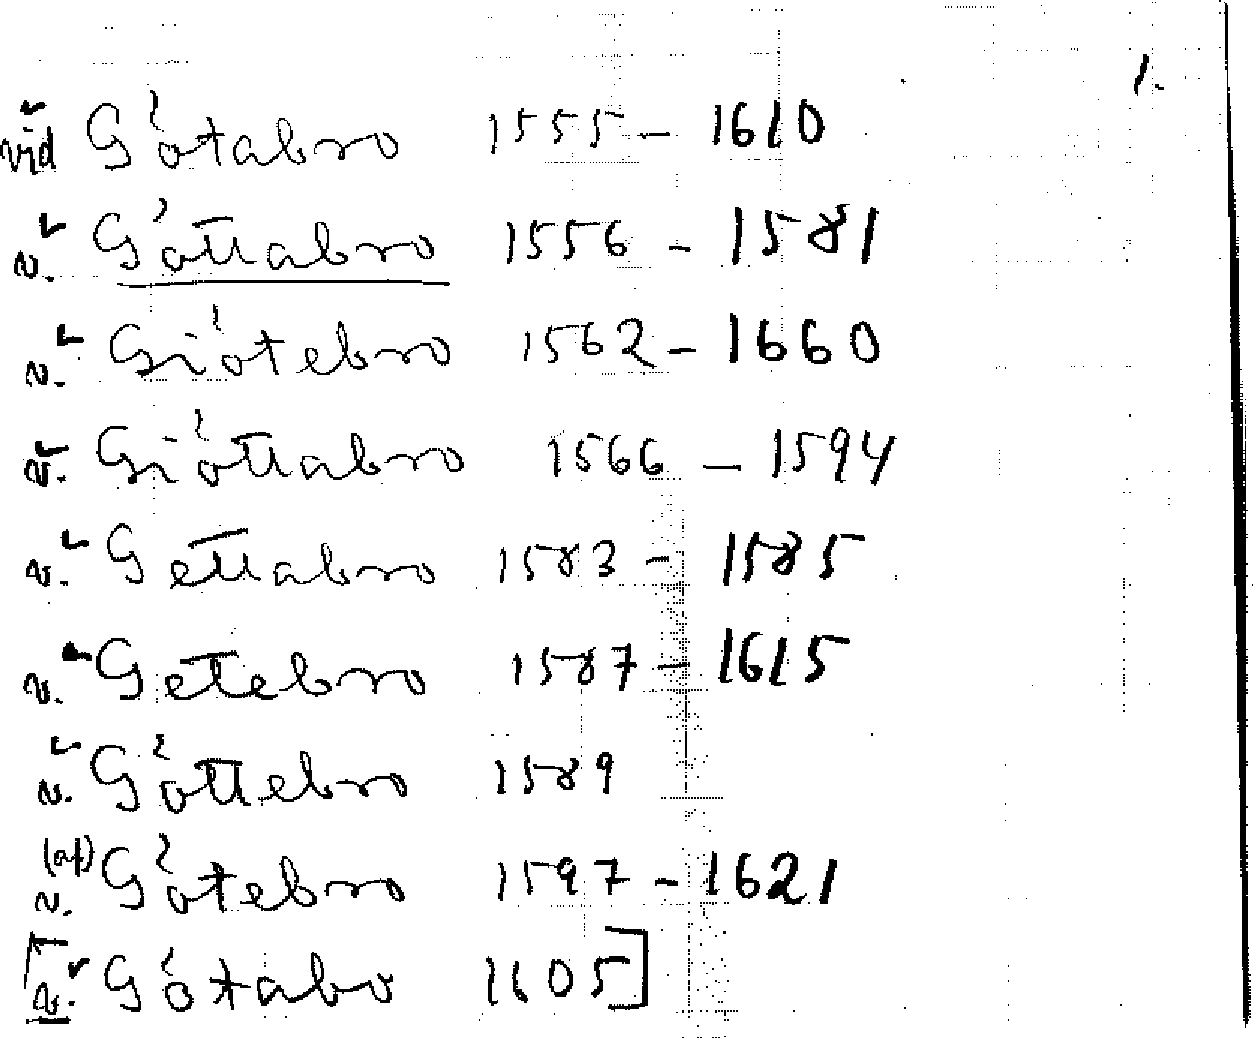 1.
vid Götabro 1555 - 1610
v. Göttabro 1556 - 1581
v. Giötebro 1562 - 1660
v. Giöttabro 1566 - 1594
v. Gettabro 1583 - 1585
v. Gettebro 1587 - 1615
v. Göttebro 1589
(af) v. Götebro 1597 - 1621
[v. Götabo 1605]